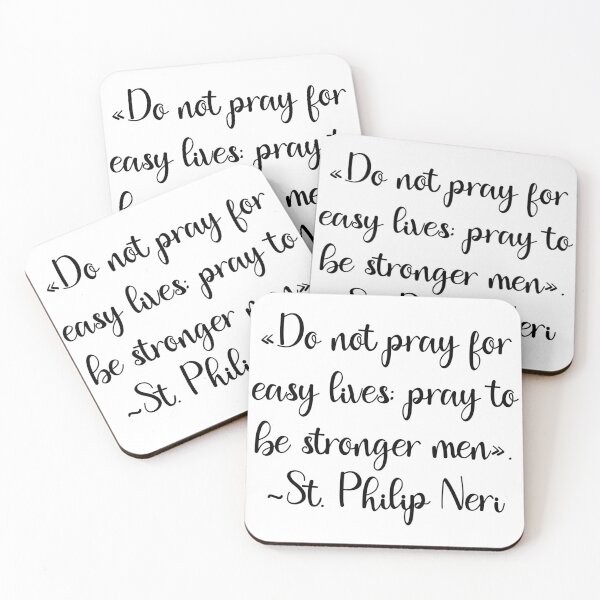 «Do not pray for
easy lives: pray
men
«Do not pray for
easy lives: pray to
be stronger men».
Neri
«Do not pray for
easy lives: pray to
be stronger men»
~St.
«Do not pray for
easy lives: pray to
be stronger men».
~St. Philip Neri